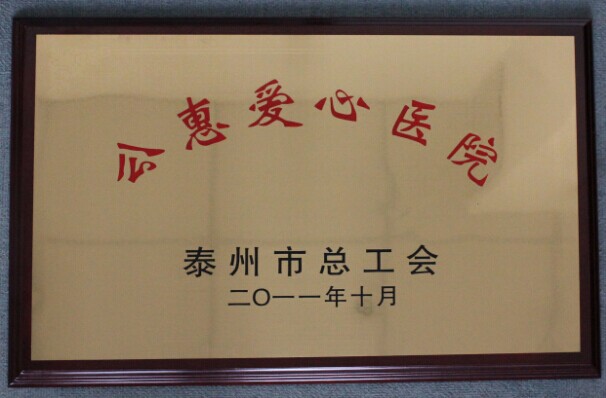 互惠爱心医院
泰州市总工会
二〇一一年十月